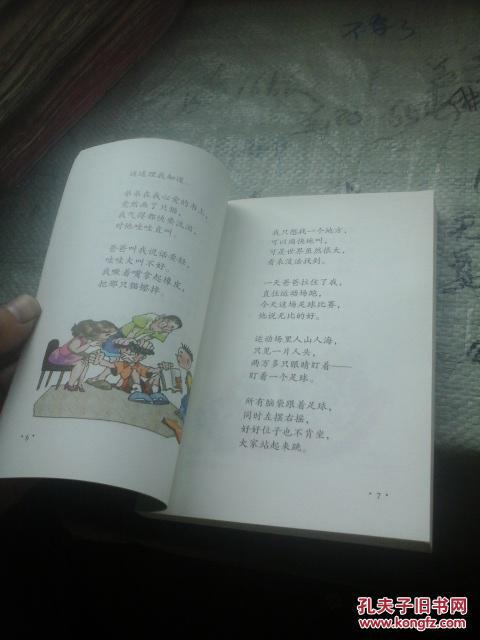 这道理我知道。
弟弟在我心爱的书上，
竟然画了只猫，
我气得都快要流泪，
对他哇哇直叫。
爸爸叫我说话要轻，
哇哇大叫不好。
我噘着嘴拿起橡皮，
把那只猫擦掉。
·6·
我只想找一个地方，
可以痛快地叫，
可是世界虽然很大，
看来没法找到。
一天爸爸拉住了我，
直往运动场跑，
今天这场足球比赛，
他说无比的好。
运动场里人山人海，
只见一片人头，
两万多只眼睛盯着——
盯着一个足球。
所有脑袋跟着足球，
同时左摆右摇，
好好位子也不肯坐，
大家站起来跳。
·7·
不导了
孔夫子旧书网
www.kongfz.com